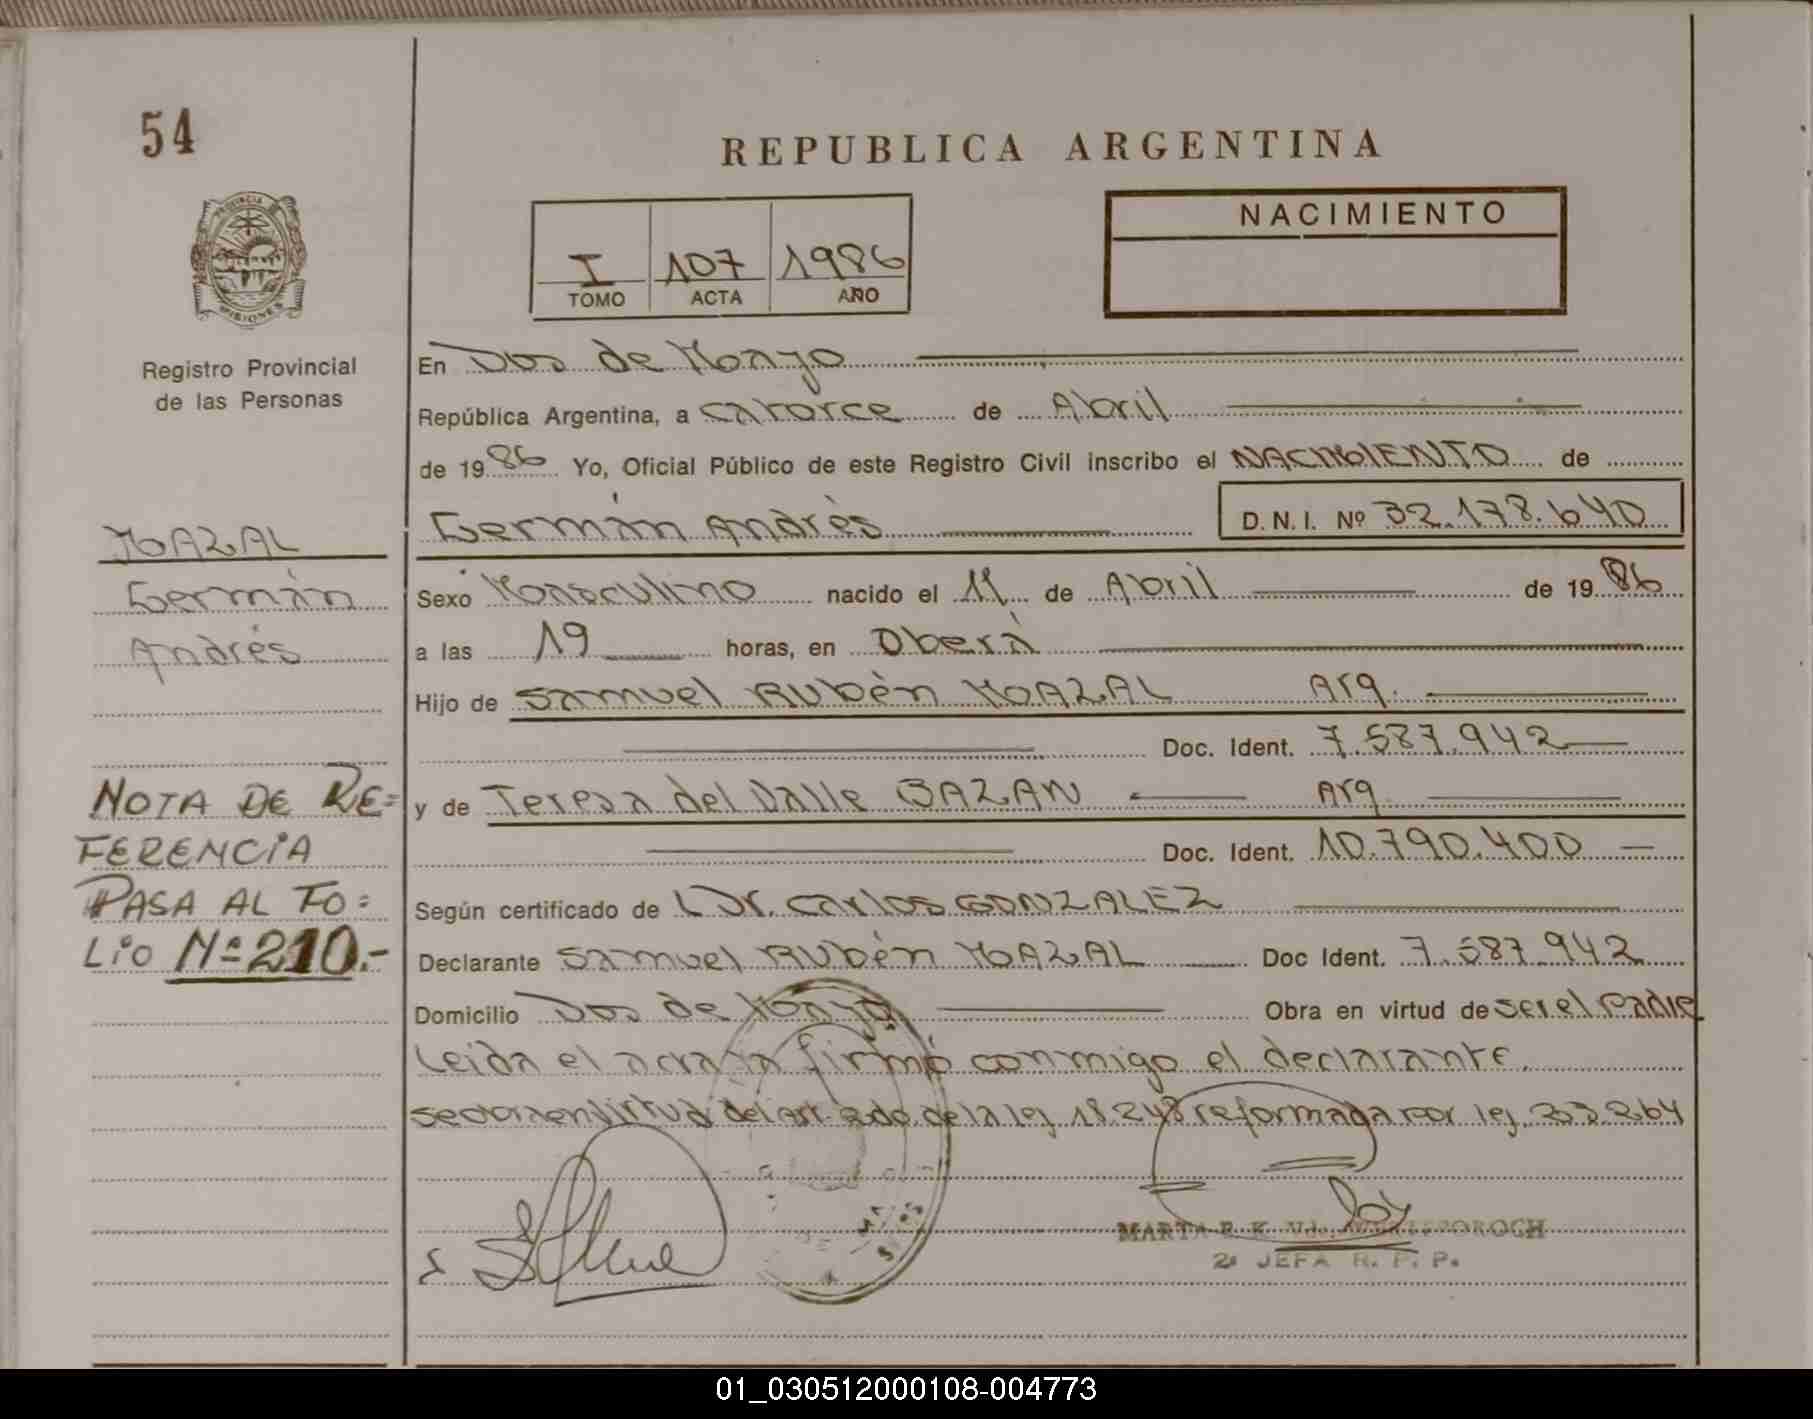 54
REPUBLICA ARGENTINA
NACIMIENTO
I 107 1986
TOMO ACTA AÑO
PROVINCIA
MISIONES
Registro Provincial
de las Personas
En Dos de Mayo
República Argentina, a catorce de Abril
de 1986 Yo, Oficial Público de este Registro Civil inscribo el NACIMIENTO de
Germán Andrés D. N. I. Nº 32.178.640
MAZAL
Germán
Andrés
Sexo Masculino nacido el 11 de Abril de 1986
a las 19 horas, en Oberá
Hijo de Samuel Rubén MAZAL Arg.
Doc. Ident. 7.587.942
y de Teresa del Valle BAZAN Arg.
Doc. Ident. 10.790.400
Según certificado de Dr. Carlos GONZALEZ
Declarante Samuel Rubén MAZAL Doc Ident. 7.587.942
Domicilio Dos de Mayo. Obra en virtud de ser el Padre
Leida el acta la firmó conmigo el declarante.
en virtud del art. 2do. de la ley 18.248 reformada por ley 23.264
NOTA DE RE=
FERENCIA
PASA AL FO=
LIO Nº 210.-
MARTA E. K. Vda.
2ª JEFA R. P. P.
01_030512000108-004773